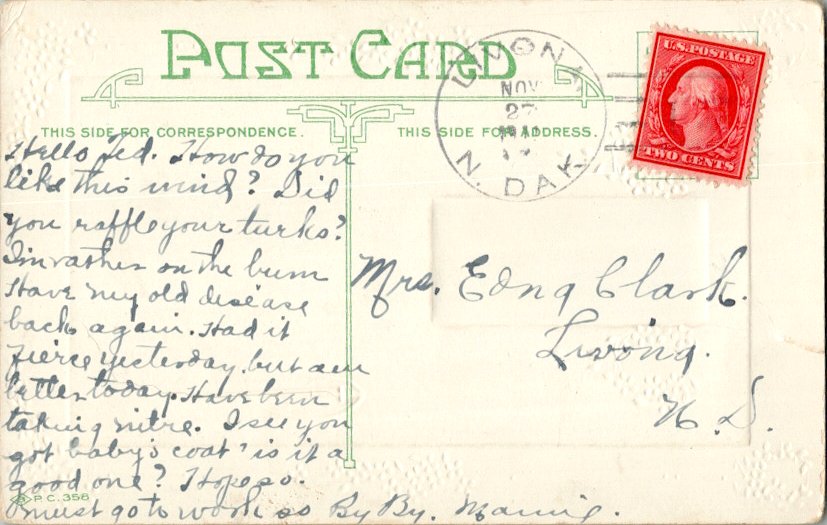 POST CARD
LIVONA
NOV
27
N. DAK
U.S. POSTAGE
TWO CENTS
THIS SIDE FOR CORRESPONDENCE.
THIS SIDE FOR ADDRESS.
Hello Ted. How do you
like this wind? Did
you raffle your turks?
I'm rather on the bum
Have my old disease
back again. Had it
fierce yesterday but am
better today. Have been
taking nitre. I see you
got baby's coat is it a
good one? Hope so.
must go to work so By By. Mamie.
Mrs. Edna Clark.
Livona.
N. D.
P.C. 358